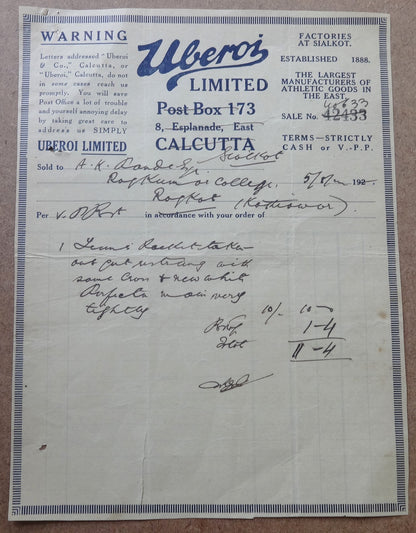 WARNING
Letters addressed "Uberoi
& Co," Calcutta, or
"Uberoi," Calcutta, do not
in some cases reach us
promptly. You will save
Post Office a lot of trouble
and yourself annoying delay
by taking great care to
address us SIMPLY
UBEROI LIMITED
Uberoi
LIMITED
Post Box 173
8, Esplanade, East
CALCUTTA
Sialkot
FACTORIES
AT SIALKOT.
ESTABLISHED 1888.
THE LARGEST
MANUFACTURERS OF
ATHLETIC GOODS IN
THE EAST.
SALE No. 42433
TERMS—STRICTLY
CASH or V.-P.P.
Sold to A. K.
Rajkumar College,
192
Rajkot (Kathiawar).
Per in accordance with your order of
1 Tennis Racket taken
out gut restrung with
some & new white
main very
tightly 10/- 10-0
1-4
11-4